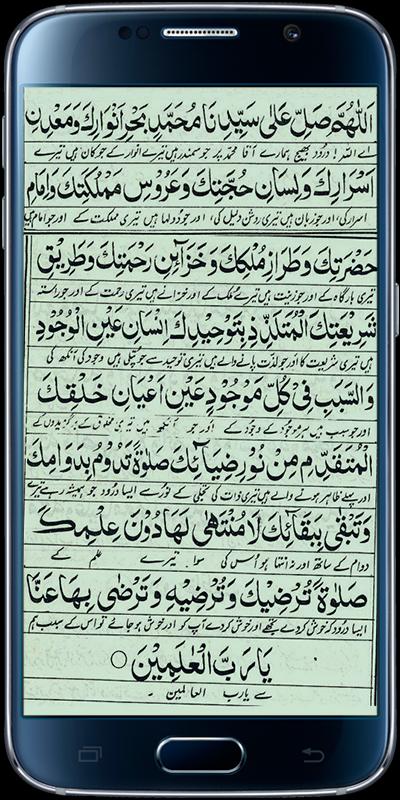 اَللّٰهُمَّ صَلِّ عَلٰى سَيِّدِنَا مُحَمَّدٍ بَحْرِ اَنْوَارِكَ وَمَعْدِنِ
اے اللہ! درود بھیج ہمارے آقا محمد پر جو سمندر ہیں تیرے انوار کے جو کان ہیں تیرے
اَسْرَارِكَ وَلِسَانِ حُجَّتِكَ وَعَرُوْسِ مَمْلَكَتِكَ وَاِمَامِ
اسرار کی، اور جو زبان ہیں تیری روشن دلیل کی، اور جو دولہا ہیں تیری مملکت کے اور جو امام ہیں
حَضْرَتِكَ وَطِرَازِ مُلْكِكَ وَخَزَآئِنِ رَحْمَتِكَ وَطَرِيْقِ
تیری بارگاہ کے اور جو زینت ہیں تیرے ملک کے اور خزانے ہیں تیری رحمت کے اور جو راستہ
شَرِيْعَتِكَ الْمُتَلَذِّذِ بِتَوْحِيْدِكَ اِنْسَانِ عَيْنِ الْوُجُوْدِ
ہیں تیری شریعت کا اور جو لذت پانے والے ہیں تیری توحید سے جو پتلی ہیں وجود کی آنکھ کی
وَالسَّبَبِ فِىْ كُلِّ مَوْجُوْدٍ عَيْنِ اَعْيَانِ خَلْقِكَ
اور جو سبب ہیں ہر موجود کے وجود کے اور جو آنکھ ہیں تیری مخلوق کے برگزیدوں کے
الْمُتَقَدِّمِ مِنْ نُوْرِ ضِيَآئِكَ صَلٰوةً تَدُوْمُ بِدَوَامِكَ
اور پہلے ظاہر ہونے والے ہیں تیری ذات کی تجلی کے نور سے ایسا درود جو ہمیشہ رہے تیرے
وَتَبْقٰى بِبَقَآئِكَ لَا مُنْتَهٰى لَهَا دُوْنَ عِلْمِكَ
دوام کے ساتھ اور نہ انتہا ہو اُس کی سوا تیرے علم کے
صَلٰوةً تُرْضِيْكَ وَتُرْضِيْهِ وَتَرْضٰى بِهَا عَنَّا
ایسا درود کہ خوش کر دے تجھے اور خوش کر دے آپ کو اور خوش ہو جائے تو اس کے سبب ہم
يَارَبَّ الْعٰلَمِيْنَ ○
سے یارب العالمین ۔